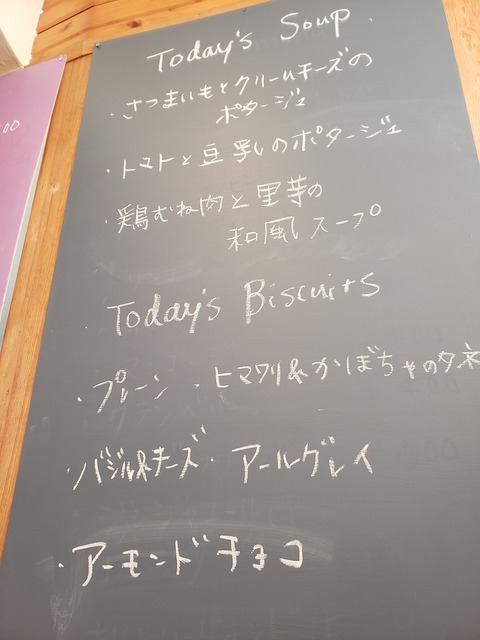 00
Today's Soup
・さつまいもとクリームチーズの
ポタージュ
・トマトと豆乳のポタージュ
・鶏むね肉と里芋の
和風スープ
Today's Biscuits
・プレーン ・ヒマワリ&かぼちゃのタネ
・バジル&チーズ ・アールグレイ
・アーモンドチョコ